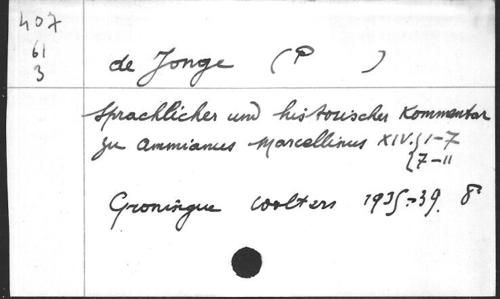 407
61
3
de Jonge (P )
Sprachlicher und historischer Kommentar
zu Ammianus Marcellinus XIV. { 1-7
{ 7-11
Groningue Wolters 1935-39. 8°